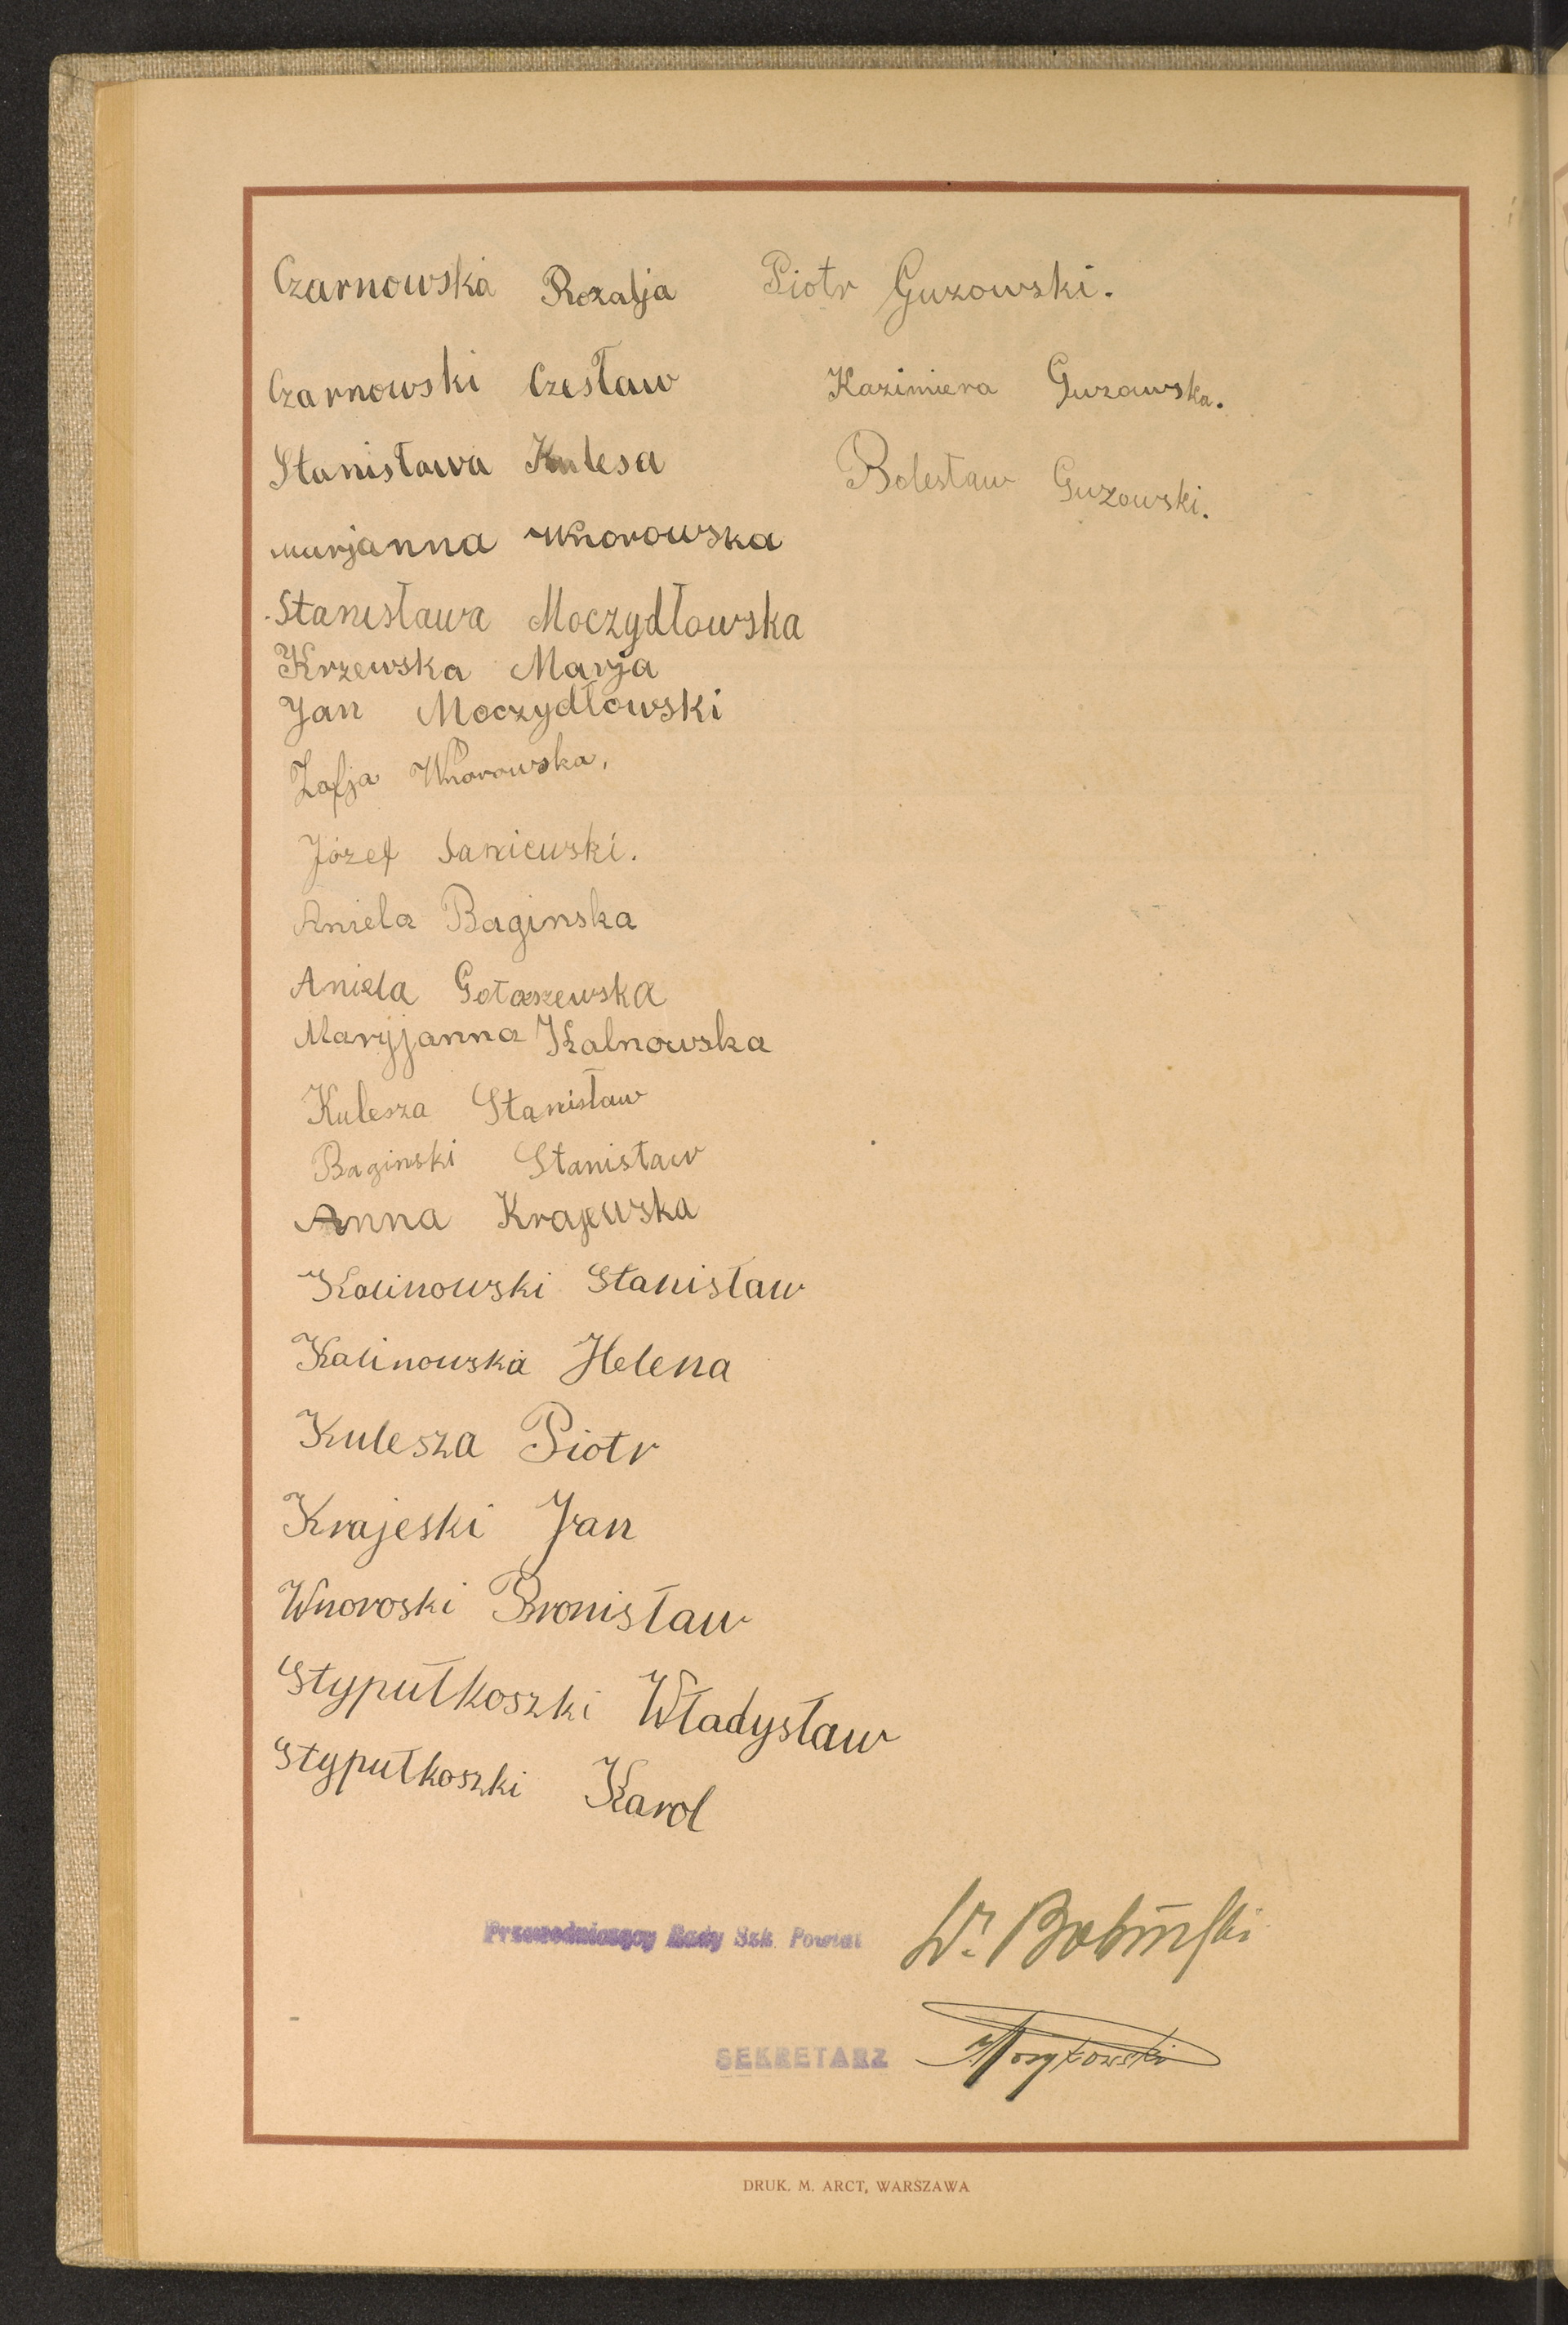 Czarnowska Rozalja
Czarnowski Czesław
Stanisława Kulesa
Marjanna Wnorowska
Stanisława Moczydłowska
Krzewska Marja
Jan Moczydłowski
Zofja Wnorowska,
Józef Janiewski.
Aniela Baginska
Aniela Gołaszewska
Maryjanna Kalnowska
Kulesza Stanisław
Baginski Stanisław
Anna Krajewska
Kalinowski Stanisław
Kalinowska Helena
Kulesza Piotr
Krajeski Jan
Wnoroski Bronisław
Stypułkoszki Władysław
Stypułkoszki Karol
Piotr Guzowski.
Kazimiera Guzowska.
Bolesław Guzowski.
Przewodniczący Rady Szk. Powiat
SEKRETARZ
DRUK. M. ARCT, WARSZAWA